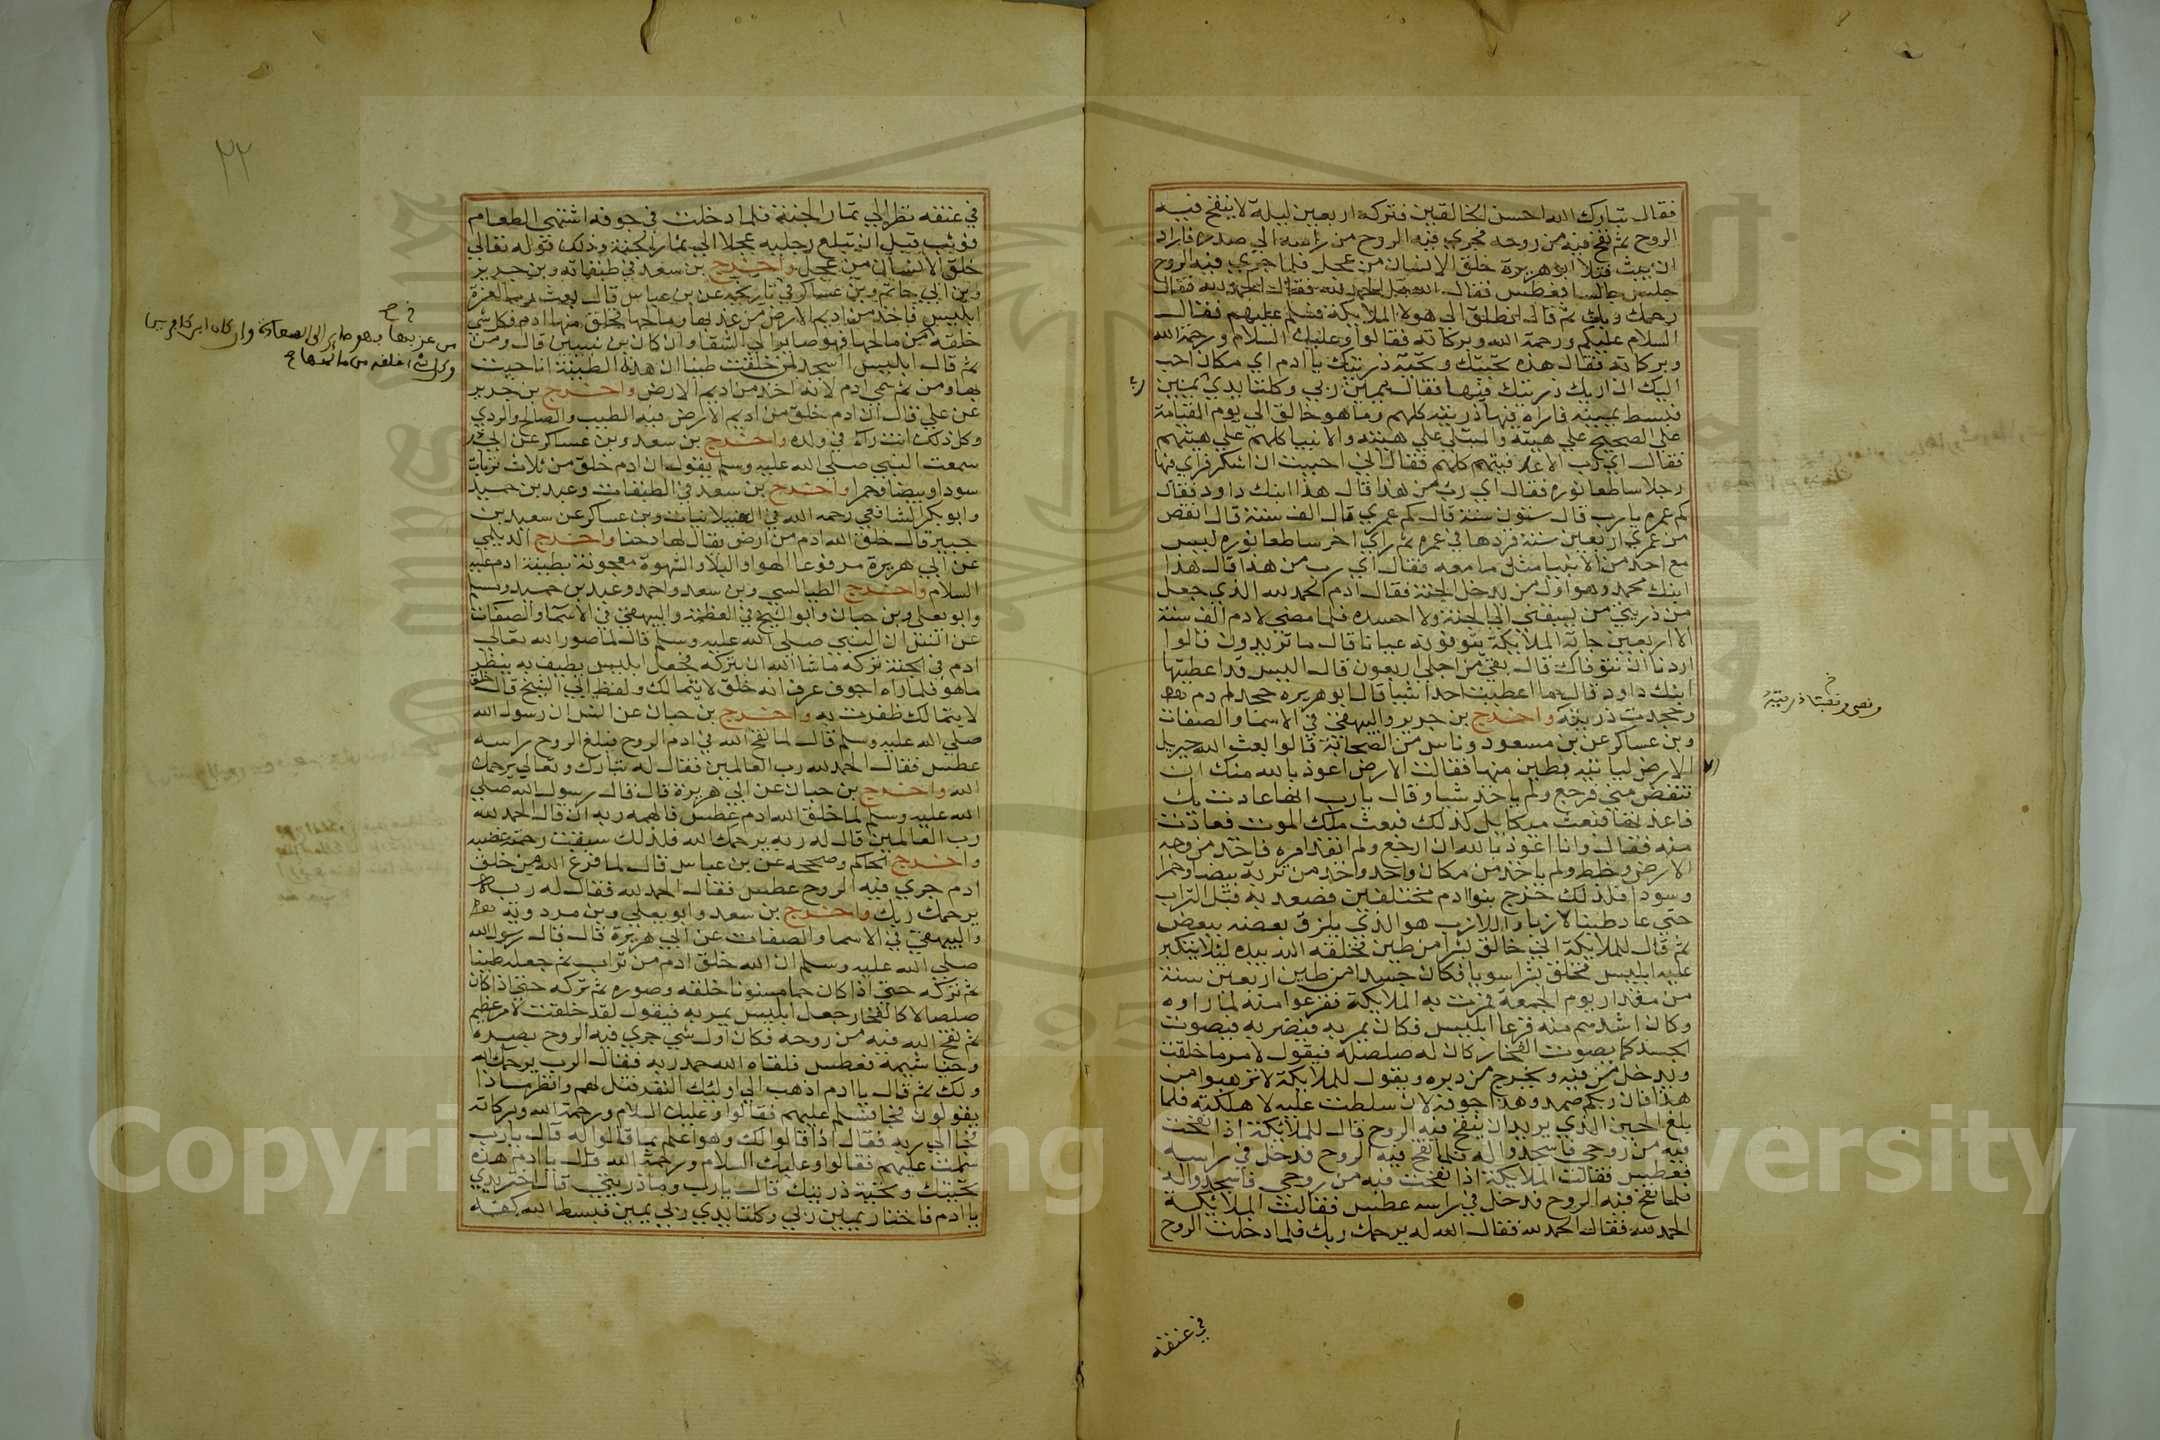 فقال تبارك الله احسن الخالقين فتركه اربعين ليلة لا ينفخ فيه
الروح ثم نفخ فيه من روحه فجري فيه الروح من راسه الي صدره فاراد
ان يثب فتلا ابو هريرة خلق الانسان من عجل فلما جري فيه الروح
جلس جالسا فعطس فقال الله قل الحمد لله فقال الحمد لله فقال
رحمك ربك ثم قال انطلق الي هولا الملايكة فسلم عليهم فقال
السلام عليكم ورحمة الله وبركاته فقالوا وعليك السلام ورحمة الله
وبركاته فقال هذه تحيتك وتحية ذريتك يا ادم اي مكان احب
اليك ان اريك ذريتك فيها فقال بيمين ربي وكلتا يدي ربي يمين
فبسط يمينه فاراه فيها ذريته كلهم وما هو خالق الي يوم القيامة
علي الصحيح علي هيته والمبتلي علي هيته والانبيا كلهم علي هيتهم
فقال اي رب الا عافيتهم كلهم فقال اني احببت ان اشكر فراي فيها
رجلا ساطعا نوره فقال اي رب من هذا قال هذا ابنك داود فقال
كم عمره يا رب قال ستون سنة قال كم عمري قال الف سنة قال انقص
من عمري اربعين سنة فزدها في عمره ثم راي اخر ساطعا نوره ليس
مع احد من الانبيا مثل ما معه فقال اي رب من هذا قال هذا
ابنك محمد وهو اول من يدخل الجنة فقال ادم الحمد لله الذي جعل
من ذريتي من يسبقني الي الجنة ولا احسده فلما مضي لادم الف سنة
الا اربعين جاته الملايكة يتوفونه عيانا قال ما تريدون قالوا
اردنا ان نتوفاك قال بقي من اجلي اربعون قال اليس قد اعطيتها
ابنك داود قال ما اعطيت احدا شيا قال ابو هريرة جحد ادم
وجحدت ذريته واخرج بن جرير والبيهقي في الاسما والصفات
وبن عساكر عن بن مسعود وناس من الصحابة قالوا بعث الله جبريل
الي الارض ليا تيه بطين منها فقالت الارض اعوذ بالله منك ان
تنقض مني فرجع ولم ياخذ شيا وقال يا رب انها عاذت بك
فاعذتها فبعث ميكايل كذلك فبعث ملك الموت فعاذت
منه فقال وانا اعوذ بالله ان ارجع ولم انفذ امره فاخذ من وجه
الارض وخلط ولم ياخذ من مكان واحد واخذ من تربة بيضا وحمرا
وسودا فلذلك خرج بنوا ادم مختلفين فصعد به فبل التراب
حتي عاد طينا لازبا واللازب هو الذي يلزق بعضه ببعض
ثم قال للملايكة اني خالق بشرا من طين فخلقه الله بيده ليلا يتكبر
عليه ابليس فخلق بشرا سويا فكان جسدا من طين اربعين سنة
من مقدار يوم الجمعة فمرت به الملايكة ففزعوا منه لما راوه
وكان اشدهم منه فزعا ابليس فكان يمر به فيضربه فيصوت
الجسد كما يصوت الفخار كان له صلصلة فيقول لامر ما خلقت
ويدخل من فيه ويخرج من دبره ويقول للملايكة لا ترهبوا من
هذا فان ربكم صمد وهذا جوف لان سلطت عليه لاهلكنه فلما
بلغ الحين الذي يريد ان ينفخ فيه الروح قال للملايكة اذا نفخت
فيه من روحي فاسجدوا له فلما نفخ فيه الروح فدخل في راسه
فعطس فقالت الملايكة اذا نفخت فيه من روحي فاسجدوا له
فلما نفخ فيه الروح فدخل في راسه عطس فقالت الملائكة
الحمد لله فقال الحمد لله فقال الله له يرحمك ربك فلما دخلت الروح
ونسي ونسيت ذريته
في عنقه
٢٢
في عنقه نظر الي ثمار الجنة فلما دخلت في جوفه اشتهي الطعام
فوثب قبل ان تبلغ رجليه عجلا الي ثمار الجنة وذلك قوله تعالي
خلق الانسان من عجل واخرج بن سعد في طبقاته وبن جرير
وبن ابي حاتم وبن عساكر في تاريخه عن بن عباس قال بعث رب العزة
ابليس فاخذ من اديم الارض من عذبها ومالحها فخلق منها ادم فكل شي
خلقه من مالحها فهو صاير الي الشقا وان كان بن نبيين قال ومن
ثم قال ابليس ااسجد لمن خلقت طينا ان هذه الطينة انا جيت
بها ومن ثم سمي ادم لانه اخذ من اديم الارض واخرج بن جرير
عن علي قال ان ادم خلق من اديم الارض فيه الطيب والصالح والردي
وكل ذلك انت راء في ولده واخرج بن سعد وبن عساكر عن ابي ذر
سمعت النبي صلي الله عليه وسلم يقول ان ادم خلق من ثلاث تربات
سودا وبيضا وحمرا واخرج بن سعد في الطبقات وعبد بن حميد
وابو بكر الشافعي رحمه الله في الغيلانيات وبن عساكر عن سعيد بن
جبير قال خلق الله ادم من ارض يقال لها دحنا واخرج الديلمي
عن ابي هريرة مرفوعا الهوا والبلا والشهوة معجونة بطينة ادم عليه
السلام واخرج الطيالسي وبن سعد واحمد وعبد بن حميد ومسلم
وابو يعلي وبن حبان وابو الشيخ في العظمة والبيهقي في الاسما والصفات
عن انس ان النبي صلي الله عليه وسلم قال لما صور الله تعالي
ادم في الجنة تركه ما شا الله ان يتركه فجعل ابليس يطيف به ينظر
ما هو فلما راه اجوف عرف انه خلق لا يتمالك ولفظ ابي الشيخ قال خلق
لا يتمالك ظفرت به واخرج بن حبان عن انس ان رسول الله
صلي الله عليه وسلم قال لما نفخ الله في ادم الروح فبلغ الروح راسه
عطس فقال الحمد لله رب العالمين فقال له تبارك وتعالي يرحمك
الله واخرج بن حبان عن ابي هريرة قال قال رسول الله صلي
الله عليه وسلم لما خلق الله ادم عطس فالهمه ربه ان قال الحمد لله
رب العالمين قال له ربه يرحمك الله فلذلك سبقت رحمته غضبه
واخرج الحاكم وصححه عن بن عباس قال لما فرغ الله من خلق
ادم جري فيه الروح عطس فقال الحمد لله فقال له ربه
يرحمك ربك واخرج بن سعد وابو يعلي وبن مردويه
والبيهقي في الاسما والصفات عن ابي هريرة قال قال رسول الله
صلي الله عليه وسلم ان الله خلق ادم من تراب ثم جعله طينا
ثم تركه حتي اذا كان حما مسنونا خلقه وصوره ثم تركه حتي اذا كان
صلصالا كالفخار جعل ابليس يمر به فيقول لقد خلقت لامر عظيم
ثم نفخ الله فيه من روحه فكان اول شي جري فيه الروح بصره
وخياشيمه فعطس فلقاه الله حمد ربه فقال الرب يرحمك الله
ولك ثم قال يا ادم اذهب الي اوليك النفر فقل لهم وانظر ماذا
يقولون فجا فسلم عليهم فقالوا وعليك السلام ورحمة الله وبركاته
فجا الي ربه فقال اذا قالوا لك وهو اعلم بما قالوا له قال يا رب
سلمت عليهم فقالوا وعليك السلام ورحمة الله قال يا ادم هذه
تحيتك وتحية ذريتك قال يا رب وما ذريتي قال اختر يدي
يا ادم فاختار يمين ربي وكلتا يدي ربي يمين فبسط الله كفه
من عذبها فهو صاير الي السعادة وان كان ابن كافرين
وكل شي خلقه من مالحها